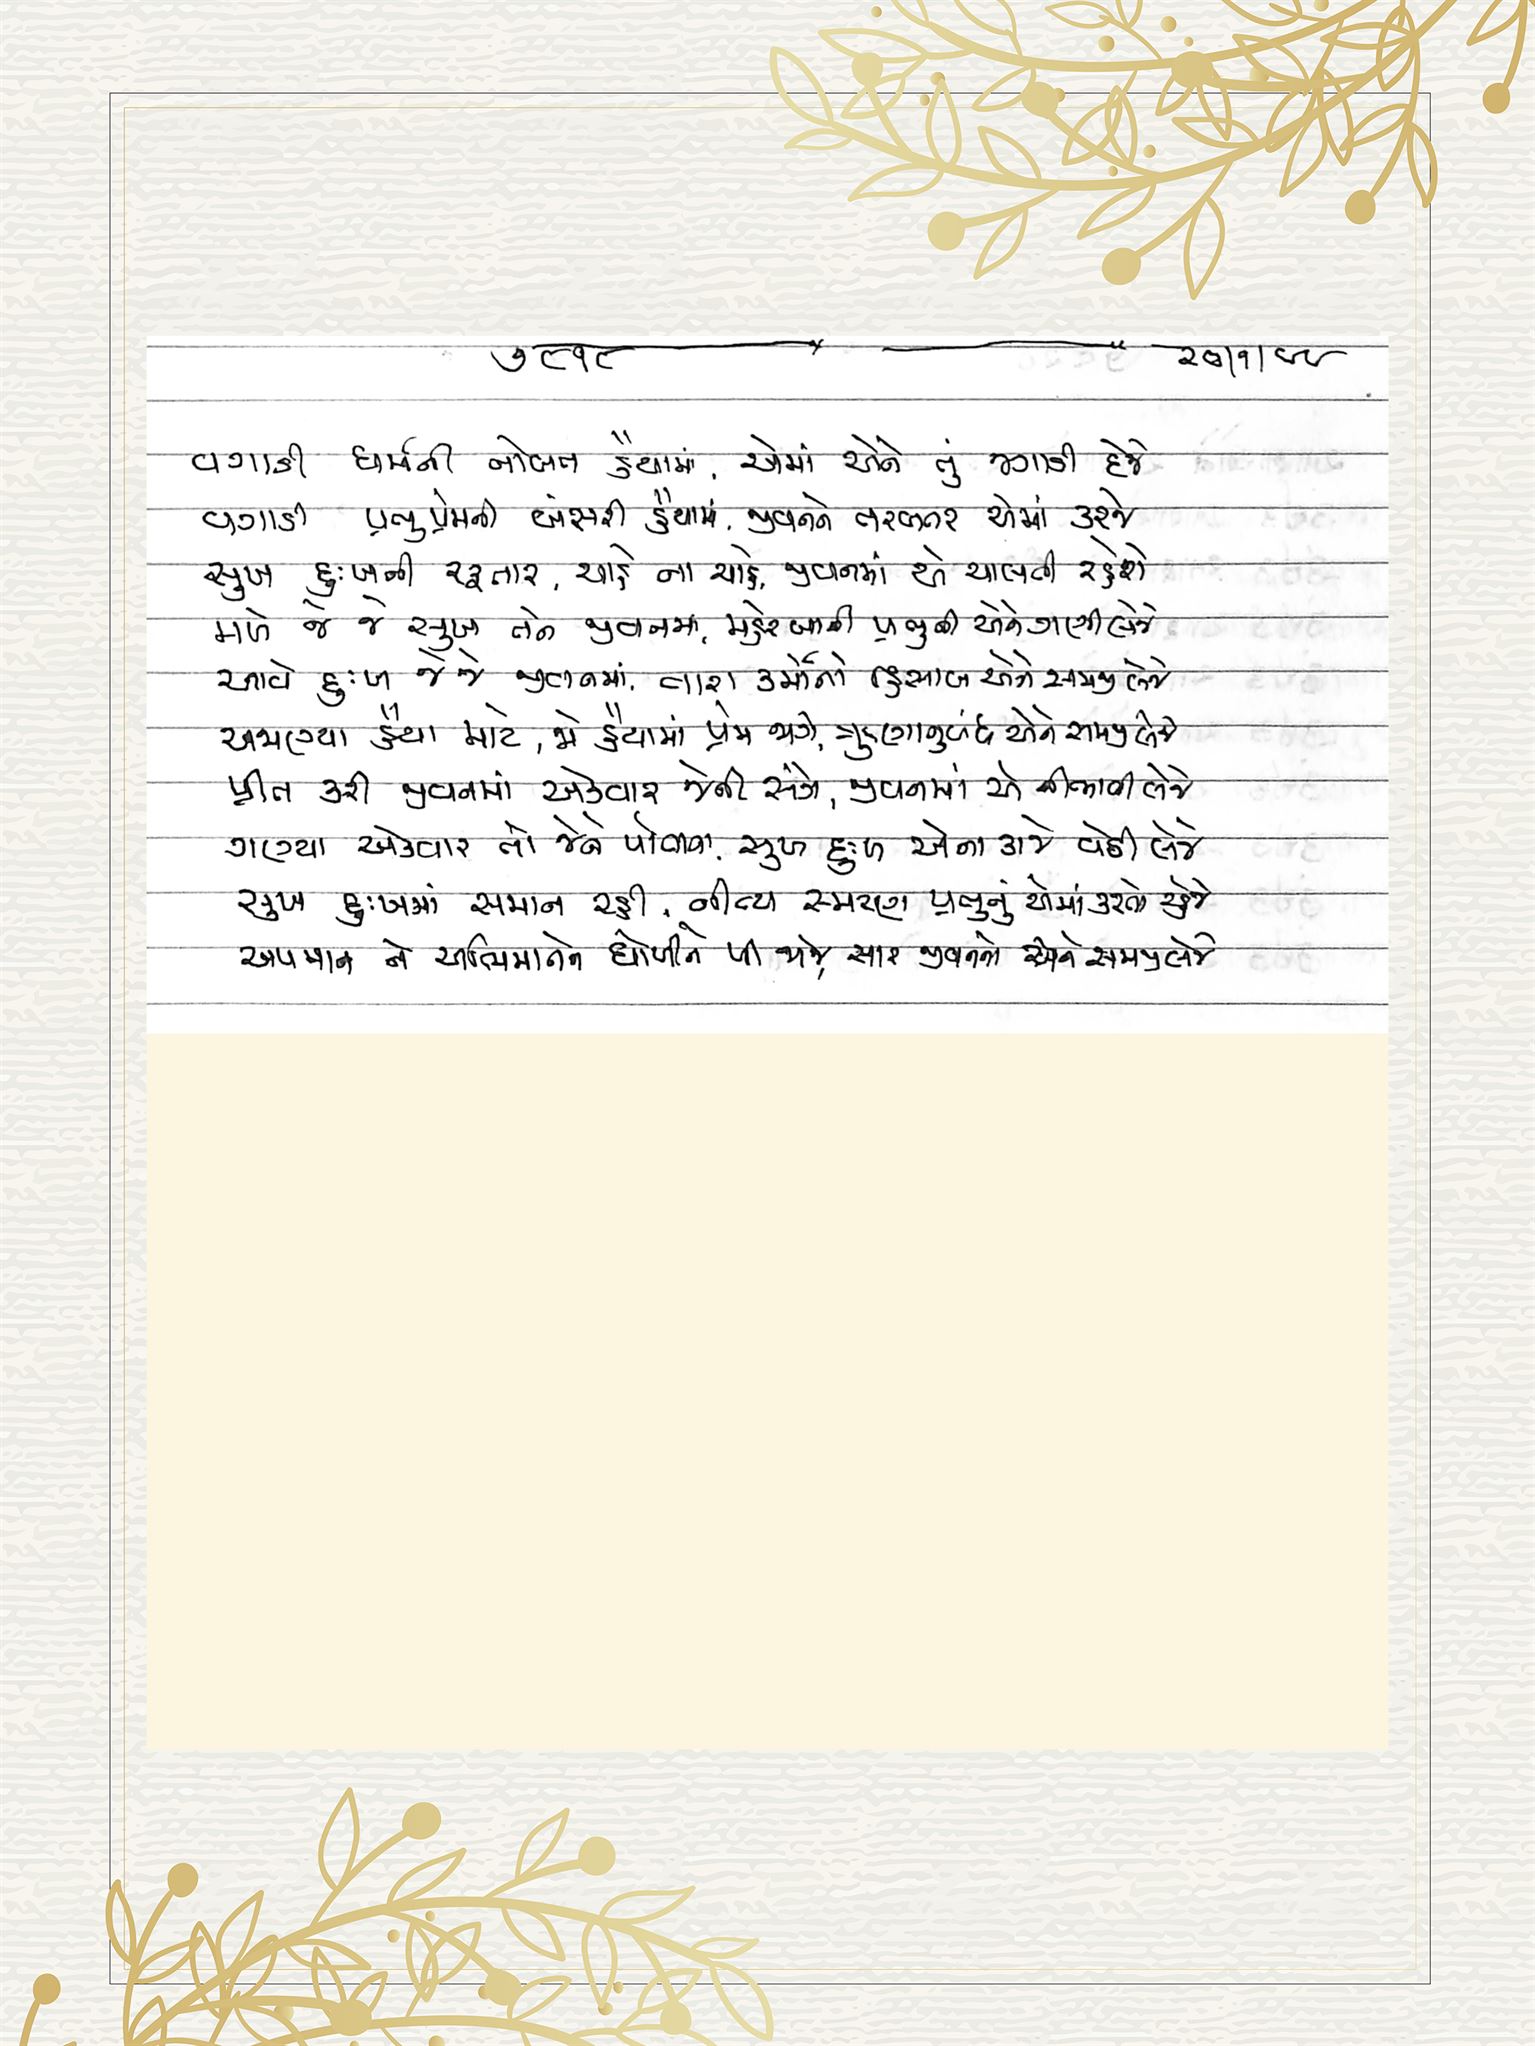 ૭૯૧૯ ૨૭/૧/૯૯
વગાડી ધર્મની નોબત હૈયામાં, એમાં એને તું જગાડી દેજે
વગાડી પ્રભુપ્રેમની બંસરી હૈયામાં, જીવનને તરબતર એમાં કરજે
સુખ દુઃખની રફતાર, ચાહે ના ચાહે, જીવનમાં એ ચાલતી રહેશે
મળે જે જે સુખ તને જીવનમાં, મહેરબાની પ્રભુની એને ગણી લેજે
આવે દુઃખ જે જે જીવનમાં, તારા કર્મોનો હિસાબ એને સમજી લેજે
અજાણ્યા હૈયા માટે, જો હૈયામાં પ્રેમ જાગે, ઋણાનુબંધ એને સમજી લેજે
પ્રીત કરી જીવનમાં એકવાર જેની સંગે, જીવનમાં એ નીભાવી લેજે
ગણ્યા એકવાર તો જેને પોતાના, સુખ દુઃખ એના કાજે વેઠી લેજે
સુખ દુઃખમાં સમાન રહી, નીત્ય સ્મરણ પ્રભુનું એમાં કરતો રહેજે
અપમાન ને અભિમાનને ઘોળીને પી જાજે, સાર જીવનનો એને સમજી લેજે